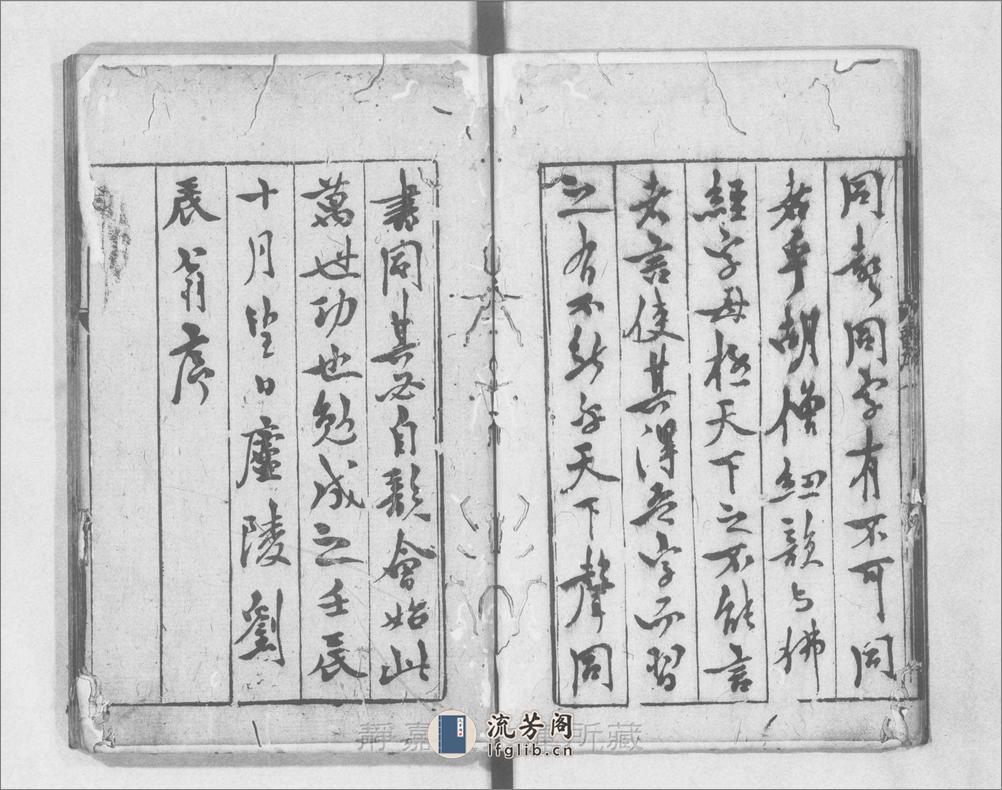 同聲同字有不可同
者乎胡僧紐韻与佛
經字母極天下之不能言
者言使其得吾字而習
之有不能天下聲同
書同其必自韻會始此
萬世功也勉成之壬辰
十月望日廬陵劉
辰翁序
靜嘉 所藏
流芳阁
lfglib.cn